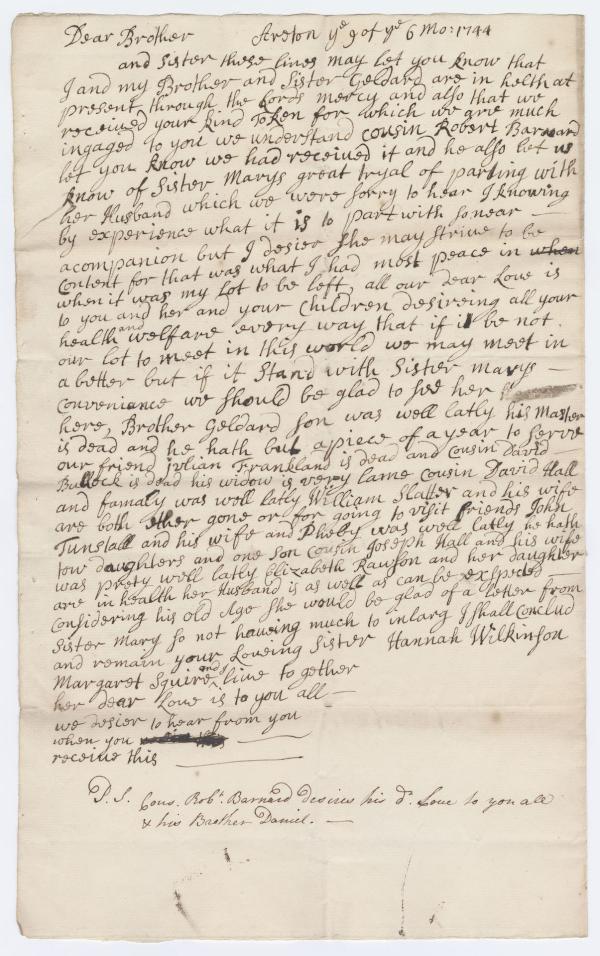 Dear Brother Areton ye 9 of ye 6 Mo: 1744
and Sister these lines may let you know that
I and my Brother and Sister Geldard are in helth at
present through the Lords mercy and also that we
received your kind Token for which we are much
ingaged to you we understand cousin Robert Barnard
let you know we had received it and he also let us
know of Sister Marys great tryal of parting with
her Husband which we were sorry to hear I knowing
by experience what it is to part with so near
a companion but I desier she may strive to be
content for that was what I had most peace in when
when it was my lot to be left, all our dear Love is
to you and her and your Children desireing all your
health and welfare every way that if it be not
our lot to meet in this world we may meet in
a better but if it stand with Sister marys
convenience we should be glad to see her
here, Brother Geldard son was well latly his Master
is dead and he hath but a piece of a year to serve
our friend julian Frankland is dead and Cousin David
Bullock is dead his widow is very lame Cousin David Hall
and famaly was well latly William Slatter and his wife
are both ether gone or for going to visit friends John
Tunstall and his wife and Pheby was well latly he hath
tow daughters and one son Cousin Joseph Hall and his wife
was prety well latly Elizabeth Rawson and her daughter
are in health her Husband is as well as can be expected
Considering his old Age She would be glad of a letter from
Sister Mary so not haveing much to inlarg I shall Conclud
and remain your Loveing Sister Hannah Wilkinson
Margaret Squire and I live to gether
her dear Love is to you all
we desier to hear from you
when you
receive this
P.S. Cous. Robt. Barnard desires his dr. Love to you all
& his Brother Daniel.